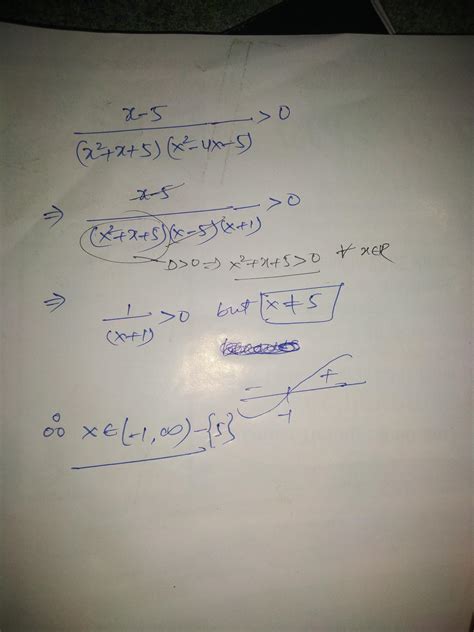 x-5 / (x²+x+5)(x²-4x-5) >0
⇒ x-5 / (x²+x+5)(x-5)(x+1) >0
D>0 ⇒ x²+x+5>0 ∀ x∈R
⇒ 1/(x+1) >0 but x≠5
- + -1
∴ x∈(-1,∞)-{5}